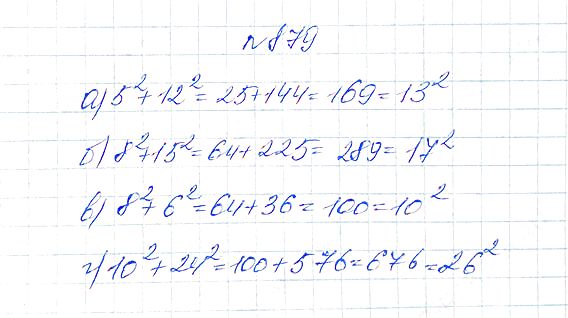 № 879
а) 5² + 12² = 25 + 144 = 169 = 13²
б) 8² + 15² = 64 + 225 = 289 = 17²
в) 8² + 6² = 64 + 36 = 100 = 10²
г) 10² + 24² = 100 + 576 = 676 = 26²